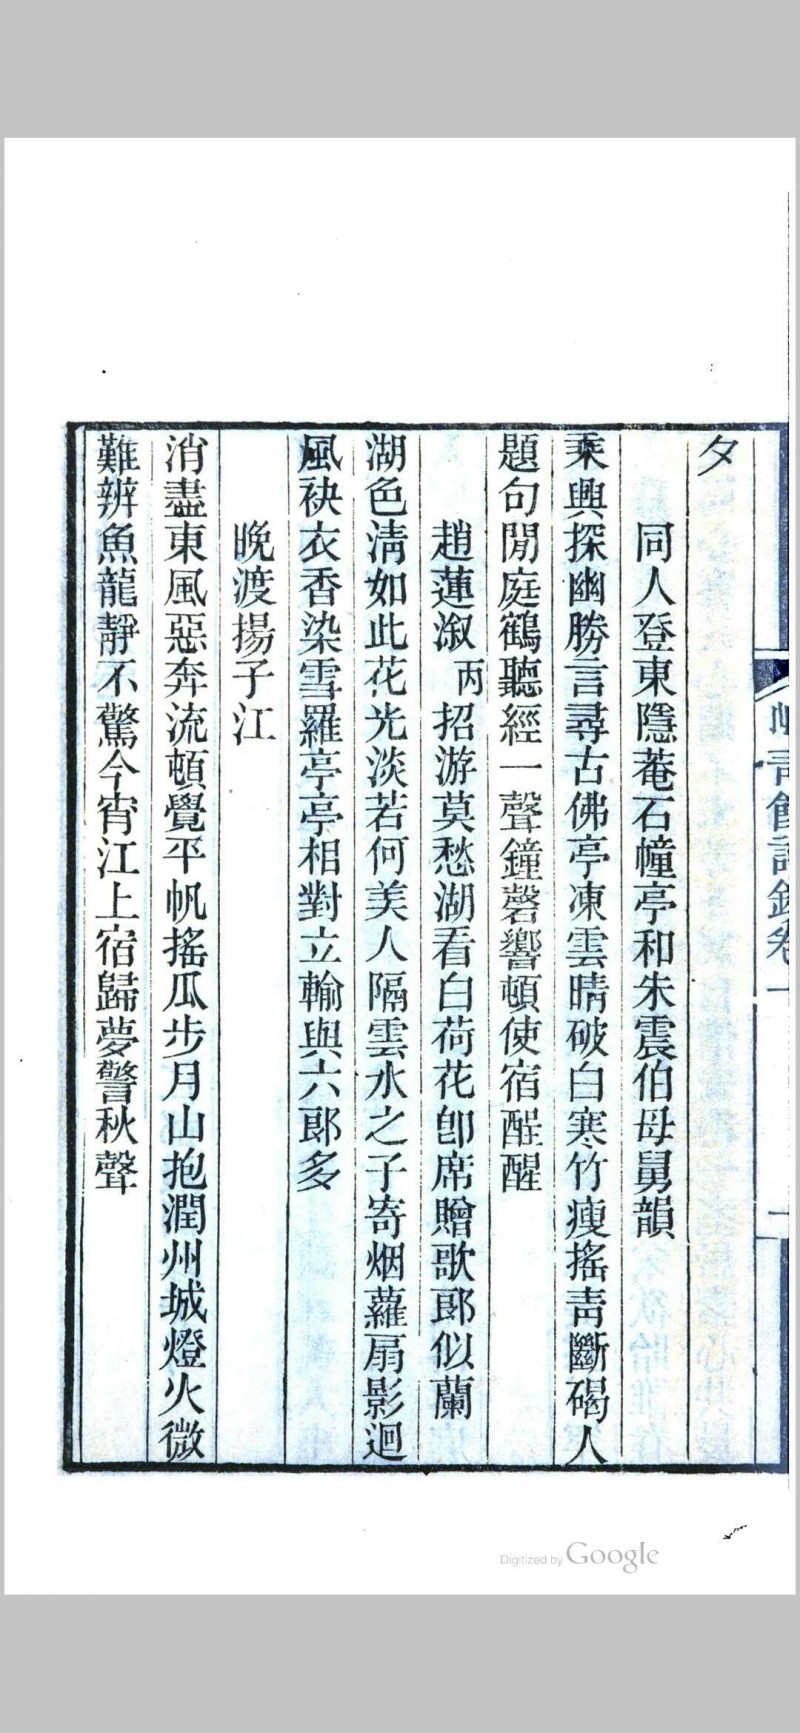 夕
同人登東隱菴石幢亭和朱震伯母舅韻
乘興探幽勝言尋古佛亭凍雲晴破白寒竹瘦搖靑斷碣人
題句閒庭鶴聽經一聲鐘磬響頓使宿酲醒
趙蓮溆丙招游莫愁湖看白荷花卽席贈歌郞似蘭
湖色淸如此花光淡若何美人隔雲水之子寄烟蘿扇影迴
風袂衣香染雪羅亭亭相對立輸與六郞多
晚渡揚子江
消盡東風惡奔流頓覺平帆搖瓜步月山抱潤州城燈火微
難辨魚龍靜不驚今宵江上宿歸夢警秋聲
Digitized by Google